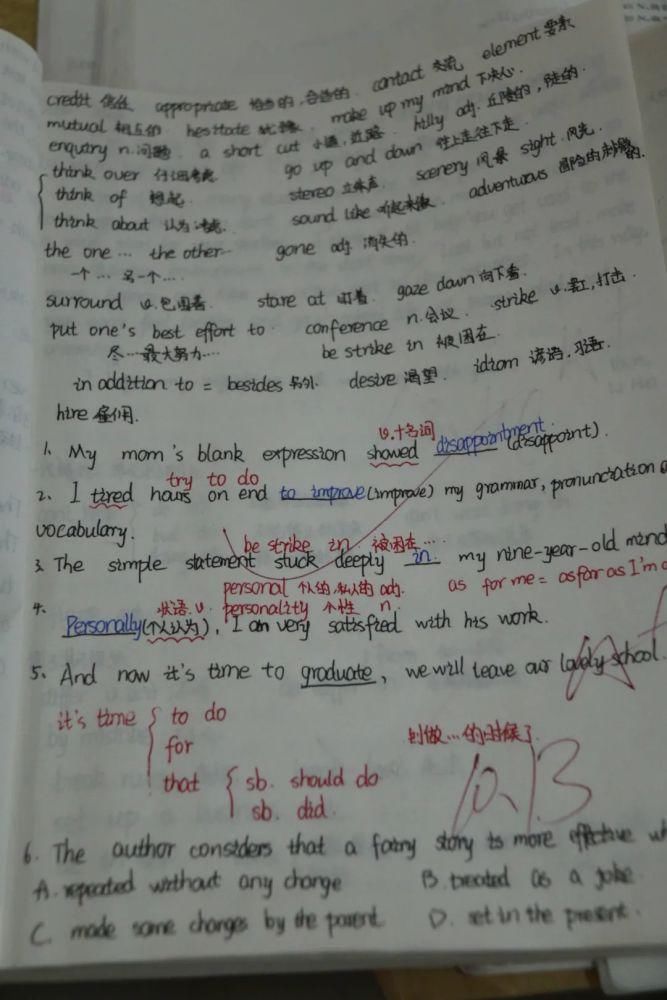 credit 信任 appropriate 恰当的,合适的. contact 交流 element 要素
mutual 相互的. hesitate 犹豫. make up my mind 下决心.
enquiry n.问题. a short cut 小道,近路. hilly adj.丘陵的,陡的.
think over 仔细考虑 go up and down 往上走往下走.
think of 想起 stereo 立体声. scenery 风景 sight.风光.
think about 认为,考虑. sound like 听起来像. adventurous 冒险的,刺激的.
the one … the other… gone adj. 消失的.
一个 … 另一个 …
surround v.包围着 stare at 盯着. gaze down 向下看.
put one's best effort to. conference n.会议. strike v.打击
尽…最大努力… be strike in 被困在.
in addition to = besides 另外. desire 渴望. idiom 谚语,习语.
hire 雇佣.
v.+名词
1. My mom's blank expression showed disappointment (disappoint).
try to do
2. I tired hours on end to improve (improve) my grammar, pronunciation
vocabulary.
be strike in 被困在…
3. The simple statement stuck deeply in my nine-year-old mind
personal 个人的,私人的 adj. as for me = as far as I'm
状语.v. personality 个性 n.
4. Personally(个人认为), I am very satisfied with his work.
5. And now it's time to graduate, we will leave our lovely school.
it's time { to do
for 到做…的时候了
that { sb. should do
sb. did.
10.13
6. The author considers that a fairy story is more effective
A. repeated without any change B. treated as a joke.
C. made some changes by the parent D. set in the present.